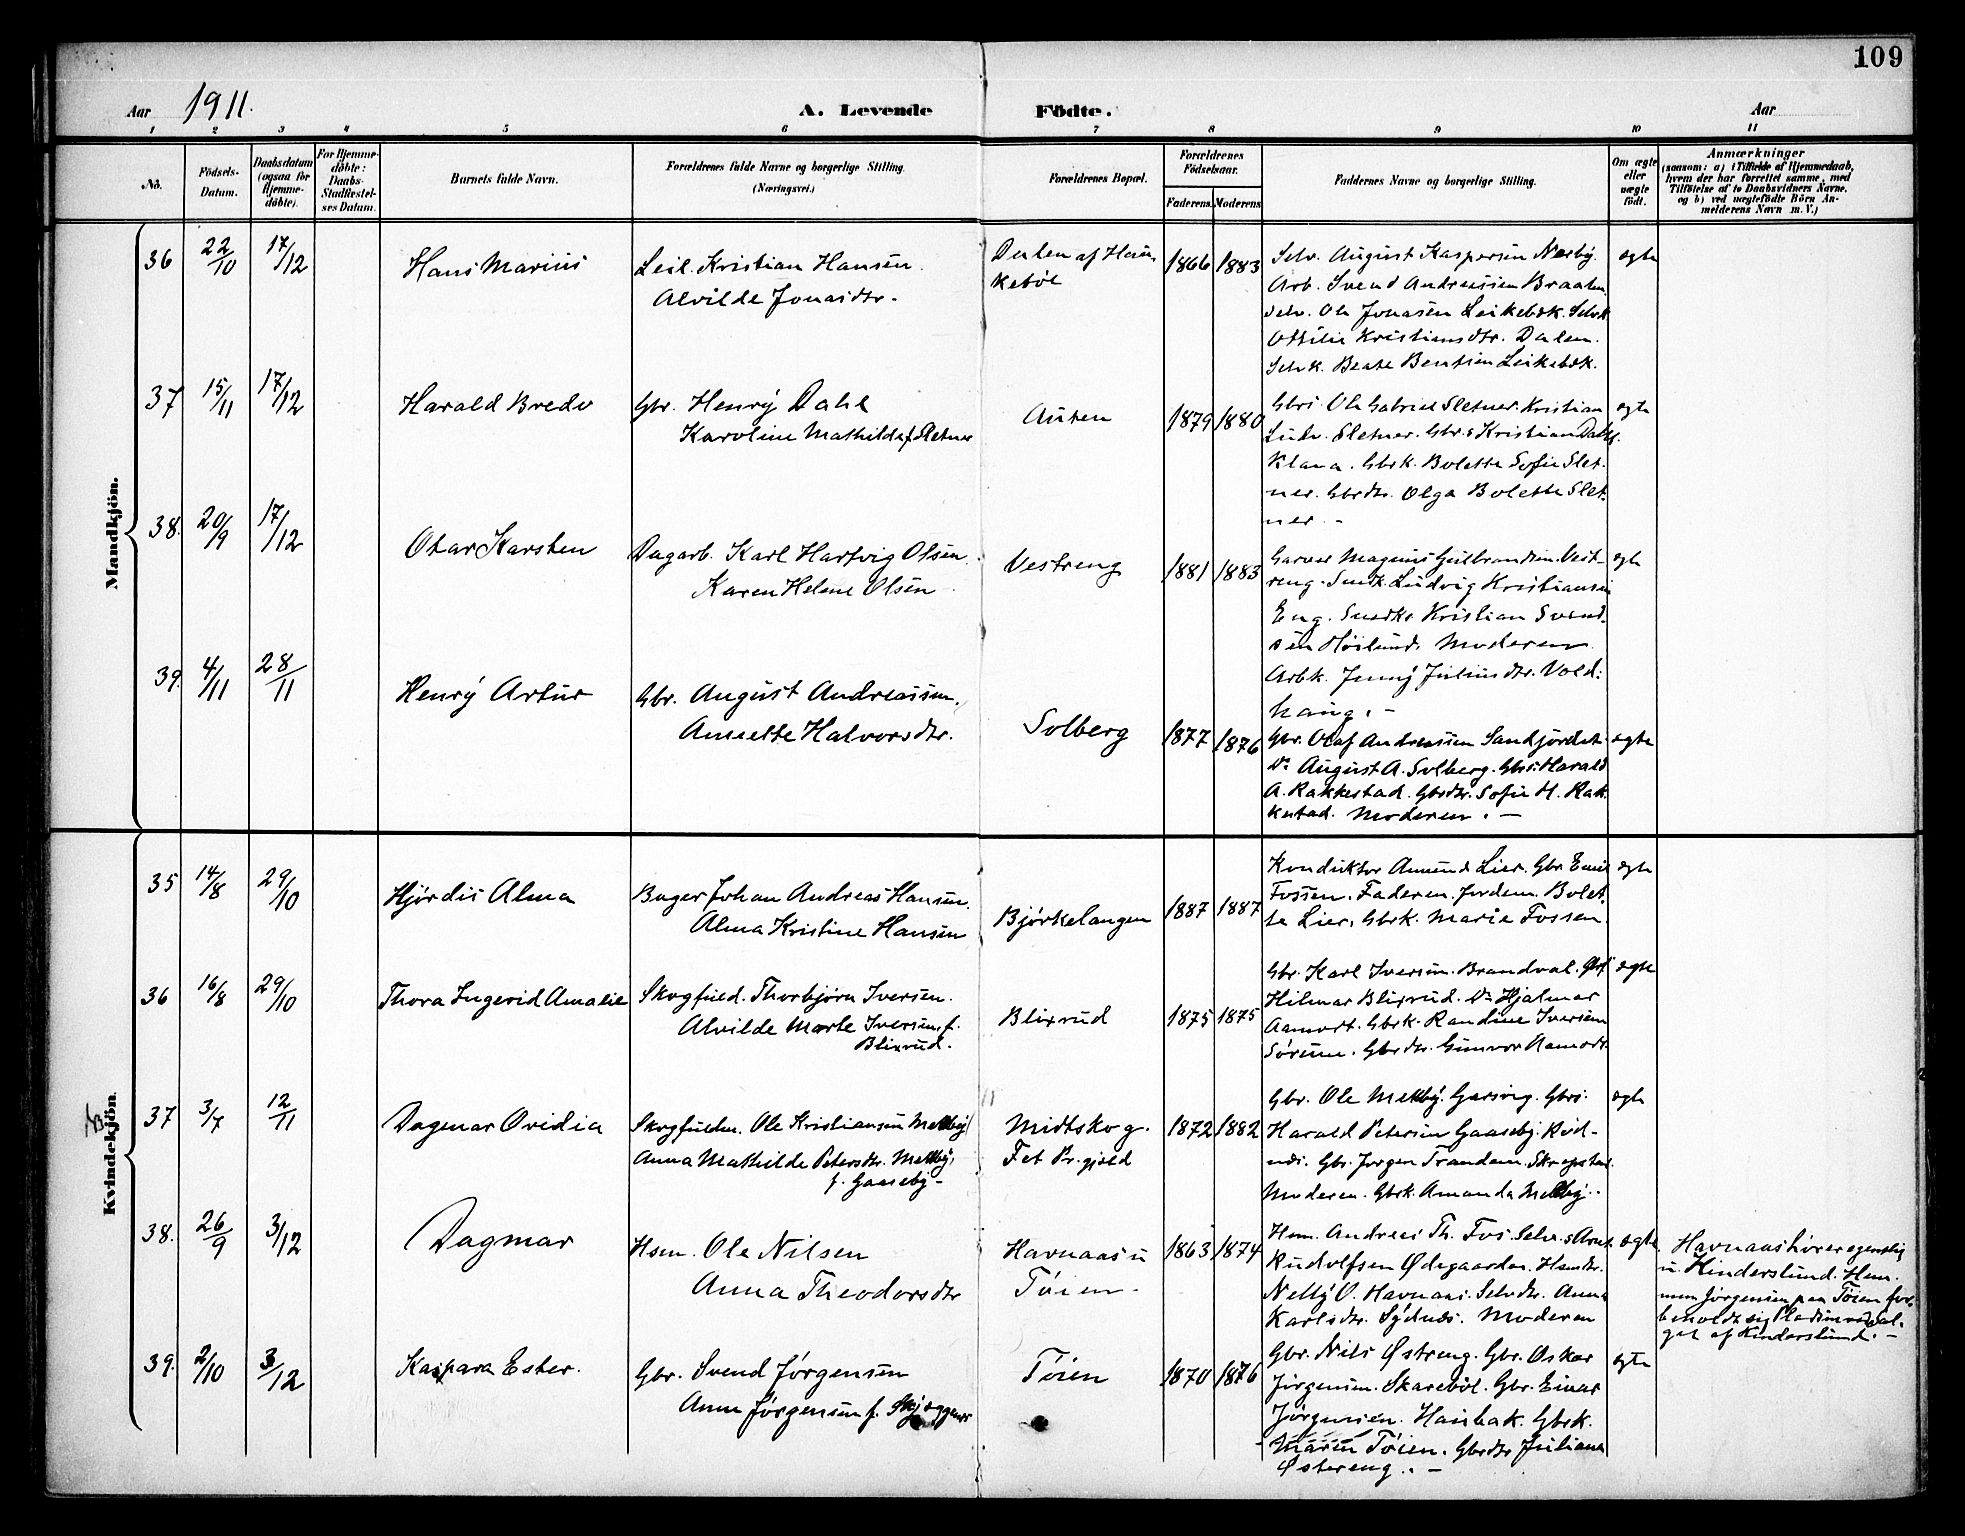 109
Aar 1911.
A. Levende Födte.
Aar
1 2 3 4 5 6 7 8 9 10 11
No.
Födsels-
Datum.
Daabsdatum
(ogsaa for
Hjemme-
döbte).
For Hjemme-
döbte:
Daabs-
Stadfæstel-
ses Datum.
Barnets fulde Navn.
Forældrenes fulde Navne og borgerlige Stilling.
(Næringsvei.)
Forældrenes Bopæl.
Forældrenes
Födselsaar.
Faderens. Moderens.
Faddernes Navne og borgerlige Stilling.
Om ægte
eller
uægte
födt.
Anmærkninger
(saasom: a) i Tilfælde af Hjemmedaab,
hvem der har forrettet samme, med
Tilföielse af to Daabsvidners Navne.
og b) ved uægtefödte Börn An-
melderens Navn m. V.)
Mandkjön.
36 22/10 17/12
Hans Marius
Leil. Kristian Hansen.
Alvilde Jonasdtr.
Dalen af Hau
kebøl
1866 1883
Selv. August Kaspersen Nærby.
Arb. Svend Andreasen Braaten.
Selv. Ole Jonasen Leikebæk. Selvk
Ottilie Kristiansdtr. Dalen.
Selvk. Beate Bentsen Leikebæk.
ægte
37 15/11 17/12
Harald Bredo
Gbr. Henrÿ Dahl
Karoline Mathilde f. Sletner
Auten
1879 1880
Gbrs. Ole Gabriel Sletner. Kristian
Ludv. Sletner. Gbrs Kristian Dahl.
Klara. Gbrk. Bolette Sofie Slet-
ner. Gbrdtr. Olga Bolette Slet-
ner. -
ægte
38. 20/9 17/12
Otar Karsten
Dagarb. Karl Hartvig Olsen.
Karen Helene Olsen
Vestreng
1881 1883
Garver Magnus Gulbrandsen. Vest-
reng. Snedk. Ludvig Kristiansen
Eng. Snedk. Kristian Svend-
sen Høilund. Moderen.
Arbk. Jenny Juliusdtr. Vold-
haug. -
ægte
39. 4/11 28/11
Henrÿ Artur
Gbr. August Andreassen.
Annette Halvorsdtr.
Solberg
1877 1876
Gbr. Olaf Andreassen Sandjordet.
Do August A. Solberg. Gbrs. Harald
A. Rakkestad. Gbrdtr. Sofie H. Rak-
kestad. Moderen. -
ægte
Kvindekjön.
35 14/8 29/10
Hjørdis Alma
Bager Johan Andreas Hansen.
Alma Kristine Hansen
Bjørkelangen
1887 1887
Konduktør Amund Lier. Gbr. Emil
Fossen. Faderen. Jordem. Bolet-
te Lier. Gbrk. Marie Fossen.
ægte
36 16/8 29/10
Thora Ingerid Amalie
Skogfued. Thorbjørn Iversen.
Alvilde Marte Iversen, f.
Blixrud.
Blixrud
1875 1875
Gbr. Karl Iversen. Brandval.
Hilmar Blixrud. Do Hjalmar
Aamodt. Gbrk. Randine Iversen
Sørum. Gbrdtr. Gunvor Aamodt.
ægte
37 3/7 12/11
Dagmar Ovidia
Skogfuldm. Ole Kristiansen Melbÿ
Anna Mathilde Petersdtr. Melbÿ,
f. Gaasebÿ -
Midtskog.
Fet Pr. gjeld
1872 1882
Gbr. Ole Melbÿ. Garsvig. Gbrs.
Harald Petersen Gaasebÿ. Rød-
næs. Gbr. Jørgen Trandem.
Moderen. Gbrk. Amanda Melbÿ.
ægte
38. 26/9 3/12
Dagmar
Hsm. Ole Nilsen
Anna Theodorsdtr
Havnaas u
Tøien.
1863 1874
Hsm. Andreas Th. Fos. Selv.s Arnt
Rudolfsen Ødegaarden. Hsmdtr.
Nelly O. Havnaas. Selvdtr. Anna
Karlsdtr. Sydnæs. Moderen
ægte
Havnaas hører egentlig
u. Hinderslund. Hem.
men Jørgensen paa Tøien for-
beholdt sig Pladsen ved Sal-
get af Kinderslund. -
39. 2/10 3/12
Kaspara Ester.
Gbr. Svend Jørgensen
Anna Jørgensen f. Skjæggenes
Tøien
1870 1876
Gbr. Nils Østreng. Gbr. Oskar
Jørgensen. Skarebøl. Gbr. Einar
Jørgensen. Haubak. Gbrk.
Maren Tøien. Gbrdtr Juliane
Østereng. -
ægte